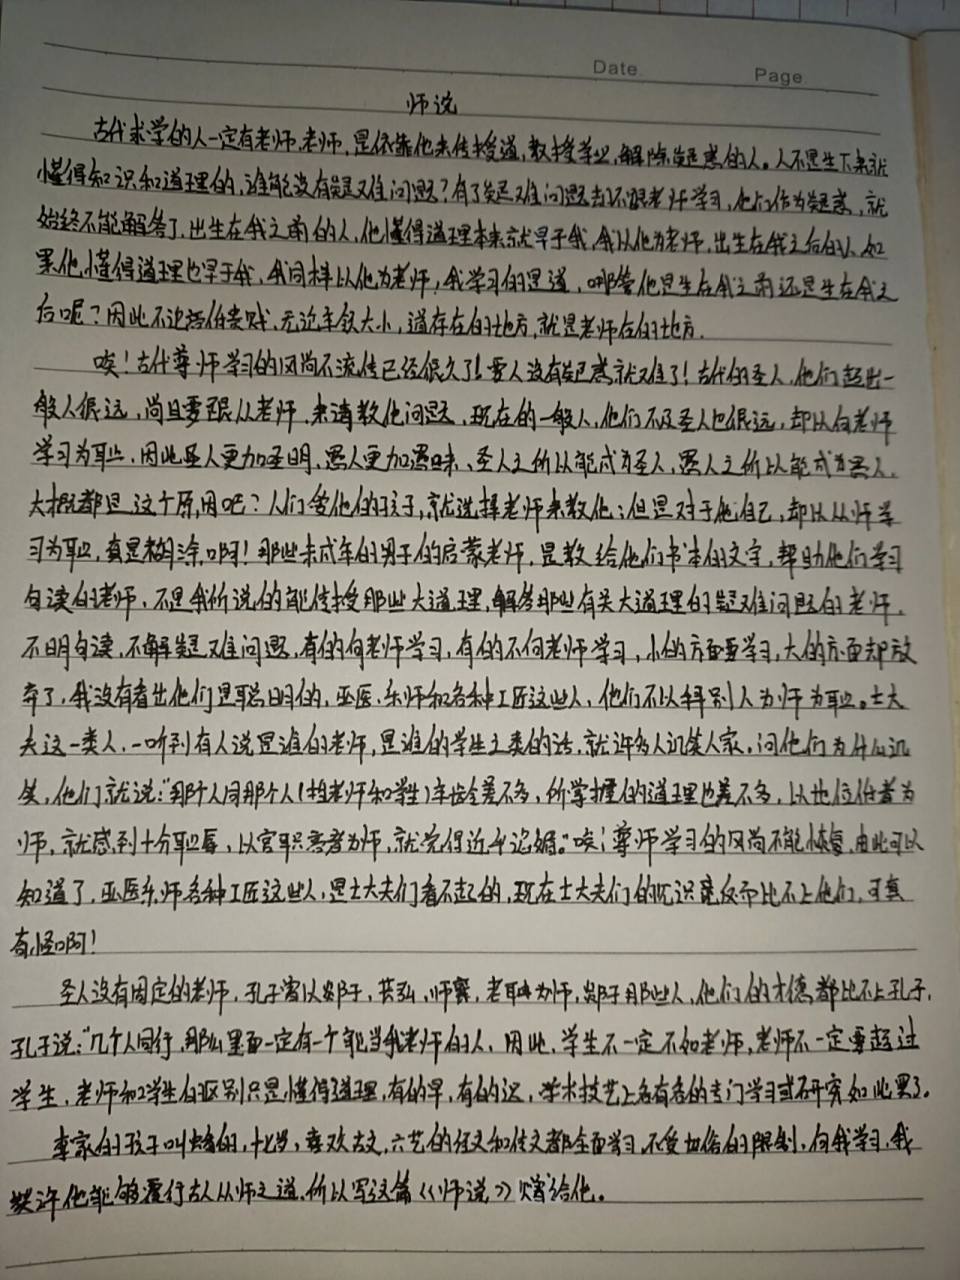 Date
Page
师说
古代求学的人一定有老师,老师,是依靠他来传授道,教授学业,解除疑惑的人。人不是生下来就
懂得知识和道理的,谁能没有疑难问题?有了疑难问题却不跟老师学习,他们作为疑惑,就
始终不能解答了,出生在我之前的人,他懂得道理本来就早于我,我从他为老师,出生在我之后的人,如
果他懂得道理也早于我,我同样以他为老师,我学习的是道,哪管他是生在我之前还是生在我之
后呢?因此不论高低贵贱,无论年纪大小,道存在的地方,就是老师在的地方.
唉!古代尊师学习的风尚不流传已经很久了!要人没有疑惑就难了!古代的圣人,他们超出一
般人很远,尚且要跟从老师,来请教他问题,现在的一般人,他们不及圣人也很远,却以向老师
学习为耻,因此圣人更加圣明,愚人更加愚昧、圣人之所以能成为圣人,愚人之所以能成为愚人,
大概都是这个原因吧?人们爱他的孩子,就选择老师来教他;但是对于他自己,却以从师学
习为耻,真是糊涂啊!那些未成年的男子的启蒙老师,是教给他们书本的文字,帮助他们学习
句读的老师,不是我所说的能传授那些大道理,解答那些有关大道理的疑难问题的老师.
不明句读,不解疑难问题,有的向老师学习,有的不向老师学习,小的方面要学习,大的方面却放
弃了,我没有看出他们是聪明的,巫医、乐师和各种工匠这些人,他们不以拜别人为师为耻。士大
夫这一类人,一听到有人说是谁的老师,是谁的学生之类的话,就许多人讥笑人家,问他们为什么讥
笑,他们就说:"那个人同那个人(指老师和学生)年龄差不多,所掌握的道理也差不多,以地位低者为
师,就感到十分耻辱,以官职高者为师,就觉得近乎谄媚。"唉!尊师学习的风尚不能恢复,由此可以
知道了,巫医乐师各种工匠这些人,是士大夫们看不起的,现在士大夫们的见识竟反而比不上他们,可真
奇怪啊!
圣人没有固定的老师,孔子曾以郯子,苌弘,师襄,老聃为师,郯子那些人,他们的才德都比不上孔子,
孔子说:"几个人同行,那么里面一定有一个能当我老师的人、因此,学生不一定不如老师,老师不一定要超过
学生,老师和学生的区别只是懂得道理,有的早,有的迟,学术技艺上各有各的专门学习或研究如此罢了。
李家的孩子叫蟠的,十七岁,喜欢古文,六艺的经文和传文都全面学习,不受世俗的限制,向我学习,我
赞许他能够履行古人从师之道,所以写这篇《师说》赠给他。